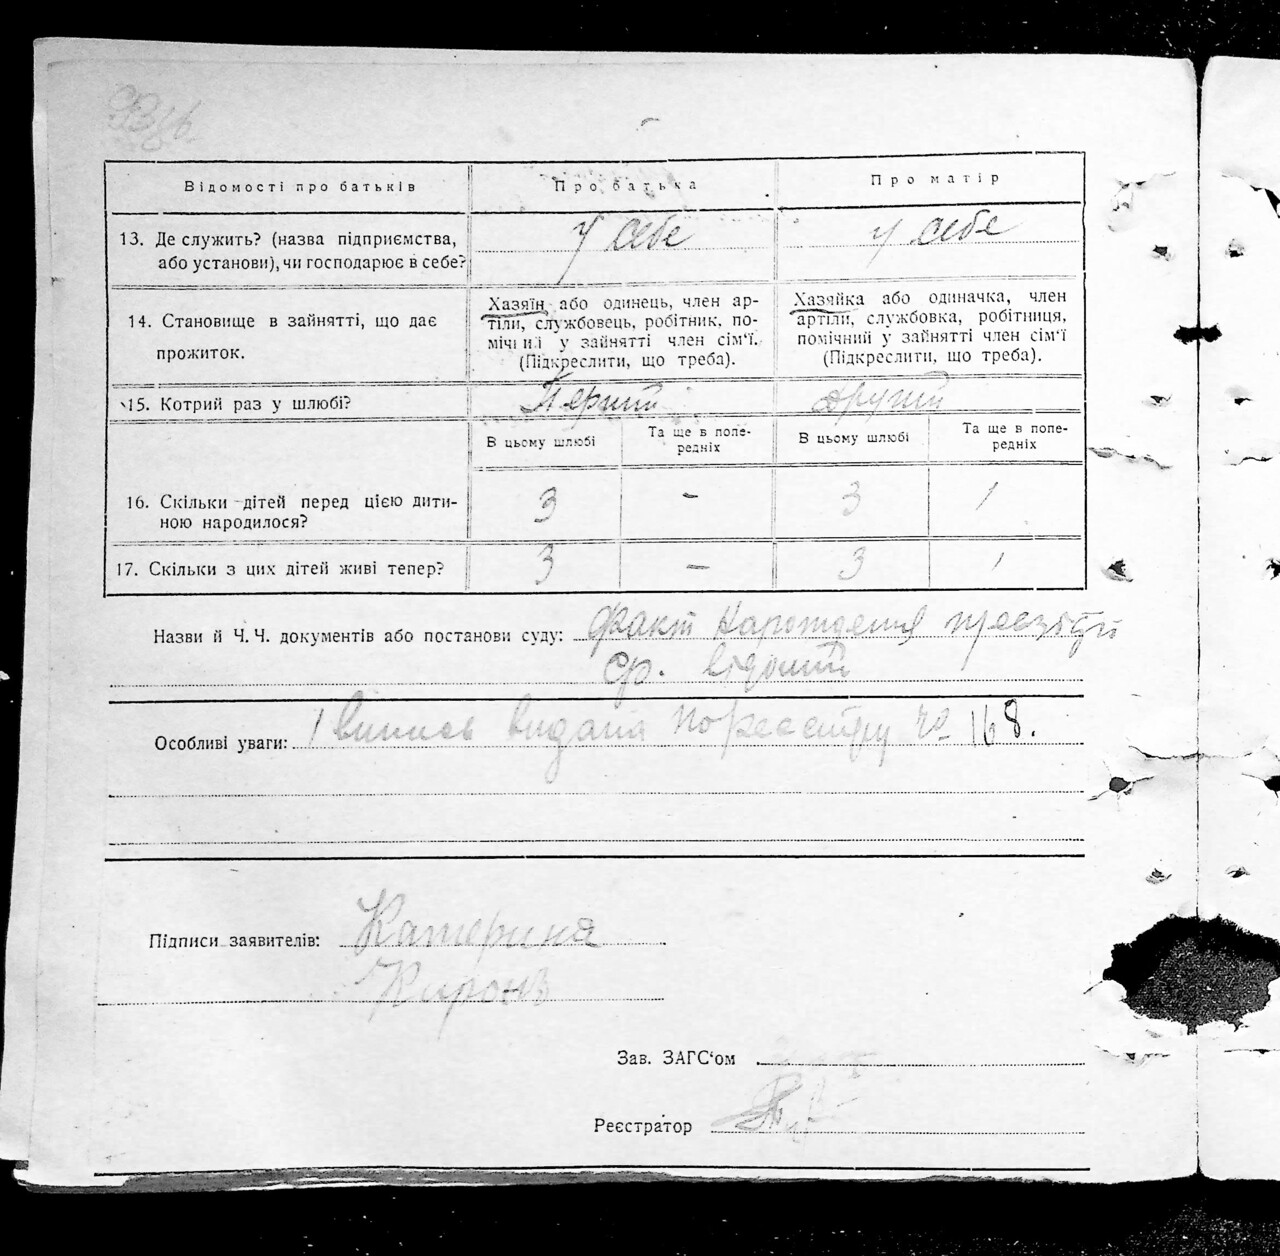 Відомості про батьків Про батька Про матір
13. Де служить? (назва підприємства, або установи), чи господарює в себе? У себе У себе
14. Становище в зайнятті, що дає прожиток.
Хазяїн або одинець, член ар-
тіли, службовець, робітник, по-
мічний у зайнятті член сім'ї.
(Підкреслити, що треба).
Хазяйка або одиначка, член
артіли, службовка, робітниця,
помічний у зайнятті член сім'ї
(Підкреслити, що треба).
15. Котрий раз у шлюбі? Перший другий
В цьому шлюбі Та ще в попе-
редніх В цьому шлюбі Та ще в попе-
редніх
16. Скільки дітей перед цією дити-
ною народилося? 3 - 3 1
17. Скільки з цих дітей живі тепер? 3 - 3 1
Назви й Ч.Ч. документів або постанови суду: факт нарождения
Особливі уваги: Випись видана по реєстру № 168.
Підписи заявителів: Катерина
Зав. ЗАГС'ом
Реєстратор